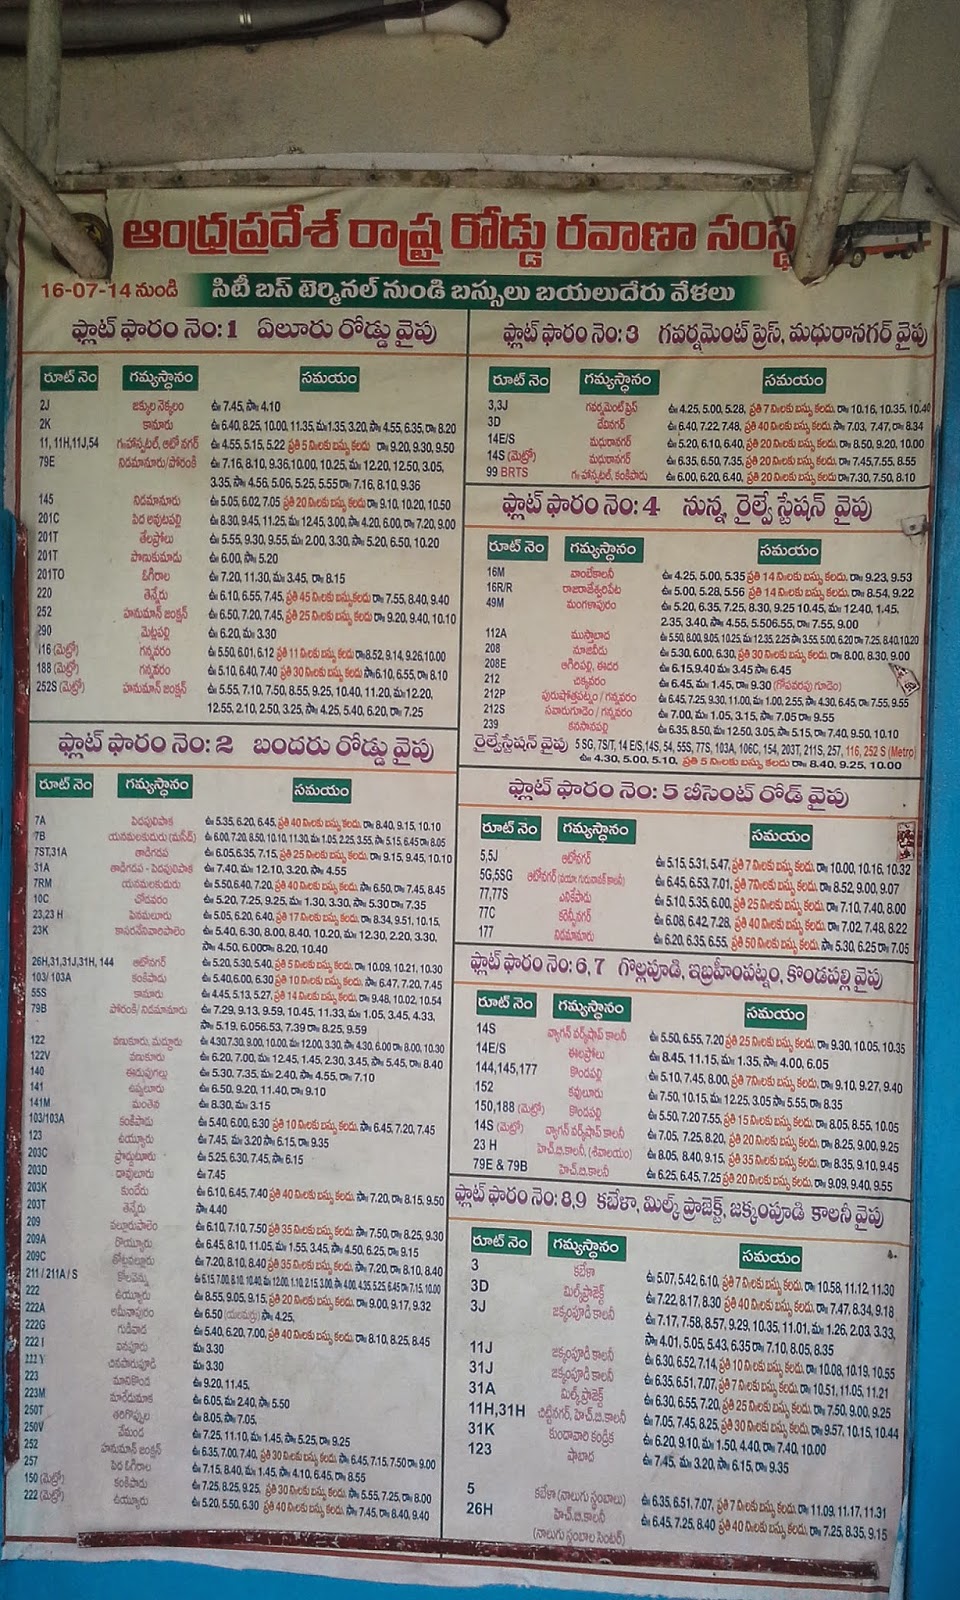 ఆంధ్రప్రదేశ్ రాష్ట్ర రోడ్డు రవాణా సంస్థ
16-07-14 నుండి సిటీ బస్ టెర్మినల్ నుండి బస్సులు బయలుదేరు వేళలు
ప్లాట్ ఫారం నెం: 1 ఏలూరు రోడ్డు వైపు
రూట్ నెం గమ్యస్థానం సమయం
2J జక్కుల నెక్కలం ఉ॥ 7.45, సా॥ 4.10
2K కానూరు ఉ॥ 6.40, 8.25, 10.00, 11.35, మ॥ 1.35, 3.20, సా॥ 4.55, 6.35, రా॥ 8.20
11, 11H,11J,54 గ॥హాస్పటల్, ఆటోనగర్ ఉ॥ 4.55, 5.15, 5.22 ప్రతి 5 ని॥లకు బస్సు కలదు రా॥ 9.20, 9.30, 9.50
79E నిడమానూరు/పోరంకి ఉ॥ 7.16, 8.10, 9.36,10.00, 10.25, మ॥ 12.20, 12.50, 3.05,
3.35, సా॥ 4.56, 5.06, 5.25, 5.55 రా॥ 7.16, 8.10, 9.36
145 నిడమానూరు ఉ॥ 5.05, 6.02, 7.05 ప్రతి 20 ని॥లకు బస్సు కలదు రా॥ 9.10, 10.20, 10.50
201C పెద అవుటపల్లి ఉ॥ 8.30, 9.45, 11.25, మ॥ 12.45, 3.00, సా॥ 4.20, 6.00, రా॥ 7.20, 9.00
201T తేలప్రోలు ఉ॥ 5.55, 9.30, 9.55, మ॥ 2.00, 3.30, సా॥ 5.20, 6.50, 10.20
201T ఉ॥ 6.00, సా॥ 5.20
201TO ఓగిరాల ఉ॥ 7.20, 11.30, మ॥ 3.45, రా॥ 8.15
220 తెన్నేరు ఉ॥ 6.10, 6.55, 7.45, ప్రతి 45 ని॥లకు బస్సుకలదు రా॥ 7.55, 8.40, 9.40
252 హనుమాన్ జంక్షన్ ఉ॥ 6.50, 7.20, 7.45, ప్రతి 25 ని॥లకు బస్సు కలదు రా॥ 9.20, 9.40, 10.10
290 మెట్లపల్లి ఉ॥ 6.20, మ॥ 3.30
116 (మెట్రో) గన్నవరం ఉ॥ 5.50, 6.01, 6.12 ప్రతి 11 ని॥లకు బస్సు కలదు రా॥8.52, 9.14, 9.26,10.00
188 (మెట్రో) గన్నవరం ఉ॥ 5.10, 6.40, 7.40 ప్రతి 30 ని॥లకు బస్సు కలదు సా॥6.10, 6.55, రా॥ 8.10
252S (మెట్రో) హనుమాన్ జంక్షన్ ఉ॥ 5.55, 7.10, 7.50, 8.55, 9.25, 10.40, 11.20, మ॥12.20,
12.55, 2.10, 2.50, 3.25, సా॥ 4.25, 5.40, 6.20, రా॥ 7.25
ప్లాట్ ఫారం నెం: 2 బందరు రోడ్డు వైపు
రూట్ నెం గమ్యస్థానం సమయం
7A పెదపులిపాక ఉ॥ 5.35, 6.20, 6.45, ప్రతి 40 ని॥లకు బస్సు కలదు రా॥ 8.40, 9.15, 10.10
7B యనమలకుదురు (మసీద్) ఉ॥ 6.00, 7.20, 8.50, 10.10, 11.30, మ॥ 1.05, 2.25, 3.55, సా॥ 5.15, 6.45 రా॥ 8.05
7ST,31A తాడిగడప ఉ॥ 6.05,6.35, 7.15, ప్రతి 25 ని॥లకు బస్సు కలదు రా॥ 9.15, 9.45, 10.10
31A తాడిగడప - పెదపులిపాక ఉ॥ 7.40, మ॥ 12.10, 3.20, సా॥ 4.55
7RM యనమలకుదురు ఉ॥ 5.50,6.40, 7.20, ప్రతి 40 ని॥లకు బస్సు కలదు. సా॥ 6.50, 7.45, 8.45
10C చోడవరం ఉ॥ 5.20, 7.25, 9.25, మ॥ 1.30, 3.30, సా॥ 5.30 రా॥ 7.35
23,23 H పెనమలూరు ఉ॥ 5.05, 6.20, 6.40, ప్రతి 17 ని॥లకు బస్సు కలదు. రా॥ 8.34, 9.51, 10.15.
23K కాసరనేనివారిపాలెం ఉ॥ 5.40, 6.30, 8.00, 8.40, 10.20, మ॥ 12.30, 2.20, 3.30,
సా॥ 4.50, 6.00రా॥ 8.20, 10.40
26H,31,31J,31H, 144 ఆటోనగర్ ఉ॥ 5.20, 5.30, 5.40, ప్రతి 5 ని॥లకు బస్సు కలదు. రా॥ 10.09, 10.21, 10.30
103/ 103A కంకిపాడు ఉ॥ 5.40,6.00, 6.30 ప్రతి 10 ని॥లకు బస్సు కలదు. సా॥ 6.47, 7.20, 7.45
55S కానూరు ఉ॥ 4.45, 5.13, 5.27, ప్రతి 14 ని॥లకు బస్సు కలదు రా॥ 9.48, 10.02, 10.54
79B పోరంకి/ నిడమానూరు ఉ॥ 7.29, 9.13, 9.59, 10.45, 11.33, మ॥ 1.05, 3.45, 4.33,
సా॥ 5.19, 6.056.53, 7.39 రా॥ 8.25, 9.59
122 వణుకూరు, మద్దూరు ఉ॥ 4.30,7.30, 9.00, 10.00, మ॥ 12.00, 3.30, సా॥ 4.30, 6.00 రా॥ 8.00, 10.30
122V వణుకూరు ఉ॥ 6.20, 7.00, మ॥ 12.45, 1.45, 2.30, 3.45, సా॥ 5.45, రా॥ 8.40
140 ఈడుపుగల్లు ఉ॥ 5.30, 7.35, మ॥ 2.40, సా॥ 4.55, రా॥ 7.10
141 ఉప్పలూరు ఉ॥ 6.50, 9.20, 11.40, రా॥ 9.10
141M మంతెన ఉ॥ 8.30, మ॥ 3.15
103/103A కంకిపాడు ఉ॥ 5.40, 6.00, 6.30, ప్రతి 10 ని॥లకు బస్సు కలదు. సా॥ 6.45, 7.20, 7.45
123 ఉయ్యూరు ఉ॥ 7.45, మ॥ 3.20 సా॥ 6.15, రా॥ 9.35
203C ప్రొద్దుటూరు ఉ॥ 5.25, 6.30, 7.45, సా॥ 6.15
203D దావులూరు ఉ॥ 7.45
203K కుందేరు ఉ॥ 6.10, 6.45, 7.40 ప్రతి 40 ని॥లకు బస్సు కలదు. సా॥ 7.20, రా॥ 8.15, 9.50
203T తెన్నేరు సా॥ 4.40
209 వల్లూరుపాలెం ఉ॥ 6.10, 7.10, 7.50 ప్రతి 35 ని॥లకు బస్సు కలదు. సా॥ 7.50, రా॥ 8.25, 9.30
209A రొయ్యూరు ఉ॥ 6.45, 8.10, 11.05, మ॥ 1.55, 3.45, సా॥ 4.50, 6.25, రా॥ 9.15
209C తోట్లవల్లూరు ఉ॥ 7.20, 8.10, 8.40 ప్రతి 35 ని॥లకు బస్సు కలదు. సా॥ 7.20, రా॥ 8.10, 8.40
211 / 211A / S కోలవెన్ను ఉ॥ 6.15, 7.00, 8.10, 10.40, మ॥ 12.00, 1.10, 2.15, 3.00, సా॥ 4.00, 4.35, 5.25, 6.45 రా॥ 7.15, 10.00
222 ఉయ్యూరు ఉ॥ 8.55, 9.05, 9.15, ప్రతి 20 ని॥లకు బస్సు కలదు. రా॥ 9.00, 9.17, 9.32
222A ఆమీనాపురం ఉ॥ 6.50 (యలమర్రు) సా॥ 4.25,
222G గుడివాడ ఉ॥ 5.40, 6.20, 7.00, ప్రతి 40 ని॥లకు బస్సు కలదు రా॥ 8.10, 8.25, 8.45
222 I మ॥ 3.30
చినపారుపూడి మ॥ 3.30
223 మానికొండ ఉ॥ 9.20, 11.45,
223M మారేడుమాక ఉ॥ 6.05, మ॥ 2.40, సా॥ 5.50
250T తరిగొప్పుల ఉ॥ 8.05, సా॥ 7.05,
250V వేమండ ఉ॥ 7.25, 11.10, మ॥ 1.45, సా॥ 5.25, రా॥ 9.25
252 హనుమాన్ జంక్షన్ ఉ॥ 6.35, 7.00, 7.40, ప్రతి 30 ని॥లకు బస్సు కలదు. సా॥ 6.45, 7.15, 7.50 రా॥ 9.00
257 పెద ఓగిరాల ఉ॥ 7.15, 8.40, మ॥ 1.45, సా॥ 4.10, 6.45, రా॥ 8.55
150 (మెట్రో) కంకిపాడు ఉ॥ 7.25, 8.25, 9.25, ప్రతి 30 ని॥లకు బస్సు కలదు. సా॥ 5.55, 7.25, రా॥ 8.00
222 (మెట్రో) ఉయ్యూరు ఉ॥ 5.20, 5.50, 6.30 ప్రతి 40 ని॥లకు బస్సు కలదు. సా॥ 7.45, రా॥ 8.40, 9.40
ప్లాట్ ఫారం నెం: 3 గవర్నమెంట్ ప్రెస్, మధురానగర్ వైపు
రూట్ నెం గమ్యస్థానం సమయం
3,3J గవర్నమెంట్ ప్రెస్ ఉ॥ 4.25, 5.00, 5.28, ప్రతి 7 ని॥లకు బస్సు కలదు. రా॥ 10.16, 10.35, 10.40
3D దేవినగర్ ఉ॥ 6.40, 7.22, 7.48, ప్రతి 40 ని॥లకు బస్సు కలదు సా॥ 7.03, 7.47, రా॥ 8.34
14E/S మధురానగర్ ఉ॥ 5.20, 6.10, 6.40, ప్రతి 20 ని॥లకు బస్సు కలదు. రా॥ 8.50, 9.20, 10.00
14S (మెట్రో) మధురానగర్ ఉ॥ 6.35, 6.50, 7.35, ప్రతి 20 ని॥లకు బస్సు కలదు. రా॥ 7.45,7.55, 8.55
99 BRTS గ॥ హాస్పటల్, కంకిపాడు ఉ॥ 6.00, 6.20, 6.40, ప్రతి 20 ని॥లకు బస్సు కలదు రా॥7.30, 7.50, 8.10
ప్లాట్ ఫారం నెం: 4 నున్న, రైల్వే స్టేషన్ వైపు
రూట్ నెం గమ్యస్థానం సమయం
16M వాంబేకాలనీ ఉ॥ 4.25, 5.00, 5.35 ప్రతి 14 ని॥లకు బస్సు కలదు. రా॥ 9.23, 9.53
16R/R రాజరాజేశ్వరిపేట ఉ॥ 5.00, 5.28, 5.56 ప్రతి 14 ని॥లకు బస్సు కలదు. రా॥ 8.54, 9.22
49M మంగళాపురం ఉ॥ 5.20, 6.35, 7.25, 8.30, 9.25 10.45, మ॥ 12.40, 1.45,
2.35, 3.40, సా॥ 4.55, 5.506.55, రా॥ 7.55, 9.00
112A ముస్తాబాద ఉ॥ 5.50, 8.00, 9.05, 10.25, మ॥ 12.35, 2.25 సా॥ 3.55, 5.00, 6.20 రా॥ 7.25, 8.40,10.20
208 నూజివీడు ఉ॥ 5.30, 6.00, 6.30, ప్రతి 30 ని॥లకు బస్సు కలదు. రా॥ 8.00, 8.30, 9.00
208E ఆగిరిపల్లి, ఈదర ఉ॥ 6.15,9.40 మ॥ 3.45 సా॥ 6.45
212 చిక్కవరం ఉ॥ 6.45, మ॥ 1.45, రా॥ 9.30 (గోపవరపు గూడెం)
212P పురుషోత్తపట్నం / గన్నవరం ఉ॥ 6.45, 7.25, 9.30, 11.00, మ॥ 1.00, 2.55, సా॥ 4.30, 6.45, రా॥ 7.55, 9.55
212S సవారుగూడెం / గన్నవరం ఉ॥ 7.00, మ॥ 1.05, 3.15, సా॥ 7.05 రా॥ 9.55
239 కనసానపల్లి ఉ॥ 6.35, 8.50, మ॥ 12.50, 3.05, సా॥ 5.15, రా॥ 7.40, 9.50, 10.10
రైల్వేస్టేషన్ వైపు 5 SG, 7S/T, 14 E/S,14S, 54, 55S, 77S, 103A, 106C, 154, 203T, 211S, 257, 116, 252 S (Metro)
ఉ॥ 4.30, 5.00, 5.10, ప్రతి 5 ని॥లకు బస్సు కలదు రా॥ 8.40, 9.25, 10.00
ప్లాట్ ఫారం నెం: 5 బీసెంట్ రోడ్ వైపు
రూట్ నెం గమ్యస్థానం సమయం
5,5J ఆటోనగర్ ఉ॥ 5.15, 5.31, 5.47, ప్రతి 7 ని॥లకు బస్సు కలదు, రా॥ 10.00, 10.16, 10.32
5G,5SG ఆటోనగర్ (వయా: గురునానక్ కాలనీ) ఉ॥ 6.45, 6.53, 7.01, ప్రతి 7ని॥లకు బస్సు కలదు, రా॥ 8.52, 9.00, 9.07
77,77S ఎనికేపాడు ఉ॥ 5.10, 5.35, 6.00, ప్రతి 25 ని॥లకు బస్సు కలదు, రా॥ 7.10, 7.40, 8.00
77C కరెన్సీనగర్ ఉ॥ 6.08, 6.42, 7.28, ప్రతి 40 ని॥లకు బస్సు కలదు, రా॥ 7.02, 7.48, 8.22
177 నిడమానూరు ఉ॥ 6.20, 6.35, 6.55, ప్రతి 50 ని॥లకు బస్సు కలదు, సా॥ 5.30, 6.25 రా॥ 7.05
ప్లాట్ ఫారం నెం: 6, 7 గొల్లపూడి, ఇబ్రహీంపట్నం, కొండపల్లి వైపు
రూట్ నెం గమ్యస్థానం సమయం
14S వ్యాగన్ వర్క్‌షాప్ కాలనీ ఉ॥ 5.50, 6.55, 7.20 ప్రతి 25 ని॥లకు బస్సు కలదు. రా॥ 9.30, 10.05, 10.35
14E/S ఈలప్రోలు ఉ॥ 8.45, 11.15, మ॥ 1.35, సా॥ 4.00, 6.05
144,145,177 కొండపల్లి ఉ॥ 5.10, 7.45, 8.00, ప్రతి 7ని॥లకు బస్సు కలదు. రా॥ 9.10, 9.27, 9.40
152 కవులూరు ఉ॥ 7.50, 10.15, మ॥ 12.25, 3.05 సా॥ 5.55, రా॥ 8.35
150,188 (మెట్రో) కొండపల్లి ఉ॥ 5.50, 7.20 7.55, ప్రతి 15 ని॥లకు బస్సు కలదు. రా॥ 8.05, 8.55, 10.05
14S (మెట్రో) వ్యాగన్ వర్క్‌షాప్ కాలనీ ఉ॥ 7.05, 7.25, 8.20, ప్రతి 20 ని॥లకు బస్సు కలదు. రా॥ 8.25, 9.00, 9.25
23 H హెచ్.బి.కాలనీ, (శివాలయం) ఉ॥ 8.05, 8.40, 9.15, ప్రతి 35 ని॥లకు బస్సు కలదు. రా॥ 8.35, 9.10, 9.45
79E & 79B హెచ్.బి.కాలనీ ఉ॥ 6.25, 6.45, 7.25 ప్రతి 20 ని॥లకు బస్సు కలదు. రా॥ 9.09, 9.40, 9.55
ప్లాట్ ఫారం నెం: 8,9 కబేళా, మిల్క్ ప్రాజెక్ట్, జక్కంపూడి కాలనీ వైపు
రూట్ నెం గమ్యస్థానం సమయం
3 కబేళా ఉ॥ 5.07, 5.42, 6.10, ప్రతి 7 ని॥లకు బస్సు కలదు. రా॥ 10.58, 11.12, 11.30
3D మిల్క్ ప్రాజెక్ట్ ఉ॥ 7.22, 8.17, 8.30 ప్రతి 40 ని॥లకు బస్సు కలదు. సా॥ 7.47, 8.34, 9.18
3J జక్కంపూడి కాలనీ ఉ॥ 7.17, 7.58, 8.57, 9.29, 10.35, 11.01, మ॥ 1.26, 2.03, 3.33,
సా॥ 4.01, 5.05, 5.43, 6.35 రా॥ 7.10, 8.05, 8.35
11J జక్కంపూడి కాలనీ ఉ॥ 6.30, 6.52, 7.14, ప్రతి 10 ని॥లకు బస్సు కలదు. రా॥ 10.08, 10.19, 10.55
31J జక్కంపూడి కాలనీ ఉ॥ 6.35, 6.51, 7.07, ప్రతి 7 ని॥లకు బస్సు కలదు. రా॥ 10.51, 11.05, 11.21
31A మిల్క్ ప్రాజెక్ట్ ఉ॥ 6.30, 6.55, 7.20, ప్రతి 25 ని॥లకు బస్సు కలదు. రా॥ 7.50, 9.00, 9.25
11H,31H చిట్టినగర్, హెచ్.బి.కాలనీ ఉ॥ 7.05, 7.45, 8.25, ప్రతి 30 ని॥లకు బస్సు కలదు. రా॥ 9.57, 10.15, 10.44
31K కుందావారి కండ్రిక ఉ॥ 6.20, 9.10, మ॥ 1.50, 4.40, రా॥ 7.40, 10.00
123 షాబాద ఉ॥ 7.45, మ॥ 3.20, సా॥ 6.15, రా॥ 9.35
5 కబేళా (నాలుగు స్థంబాలు) ఉ॥ 6.35, 6.51, 7.07, ప్రతి 7 ని॥లకు బస్సు కలదు రా॥ 11.09, 11.17, 11.31
26H హెచ్.బి.కాలనీ ఉ॥ 6.45, 7.25, 8.40 ప్రతి 40 ని॥లకు బస్సు కలదు. రా॥ 7.25, 8.35, 9.15
(నాలుగు స్థంబాల సెంటర్)